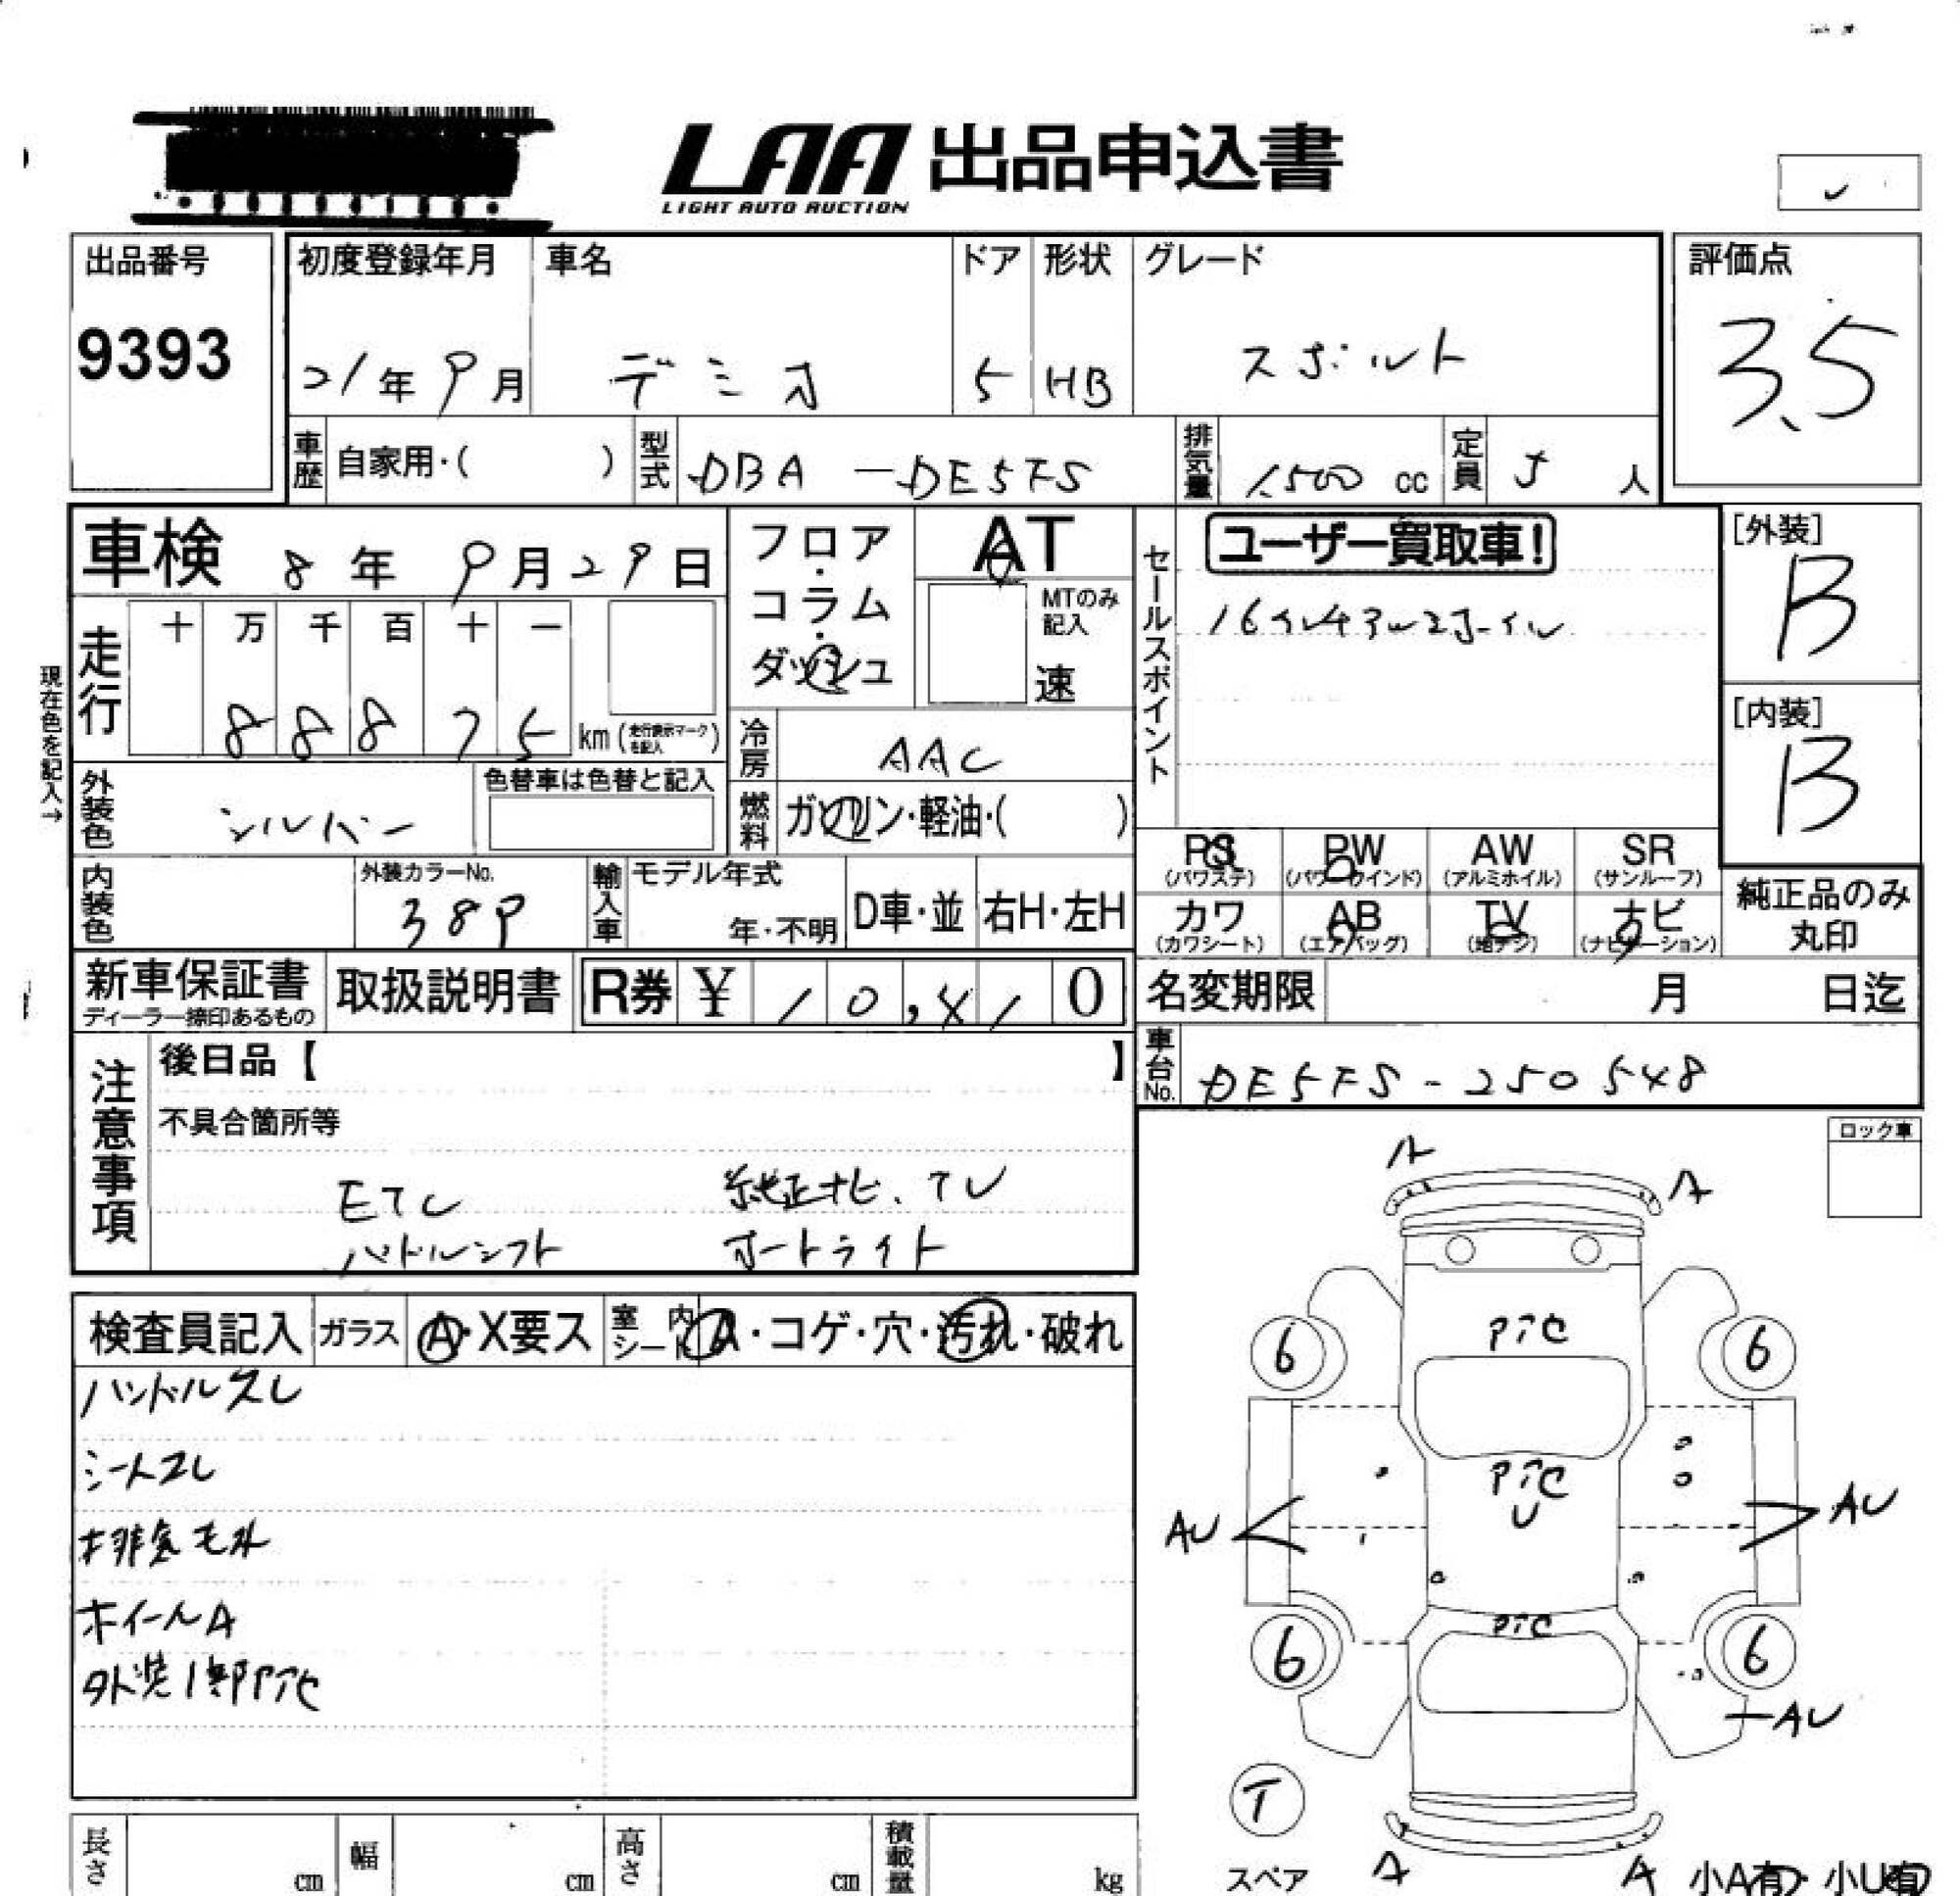 LAA 出品申込書
LIGHT AUTO AUCTION
出品番号
9393
初度登録年月
21年9月
車名
デミオ
ドア
5
形状
HB
グレード
スポルト
評価点
3.5
車歴
自家用・( )
型式
DBA-DE5FS
排気量
1500 cc
定員
5 人
車検 8年 9月29日
フロア・コラム・ダッシュ
AT
MTのみ記入
速
セールスポイント
ユーザー買取車!
[外装]
B
[内装]
B
現在色を記入→
走行
十 万 千 百 十 一
8 8 8 7 5
km (走行表示マークを記入)
冷房
AAC
外装色
シルバー
色替車は色替と記入
燃料
ガソリン・軽油・( )
内装色
外装カラーNo.
38P
輸入車
モデル年式
年・不明
D車・並
右H・左H
PS (パワステ)
PW (パワーウインド)
AW (アルミホイル)
SR (サンルーフ)
カワ (カワシート)
AB (エアバッグ)
TV (地デジ)
ナビ (ナビゲーション)
純正品のみ丸印
新車保証書
ディーラー捺印あるもの
取扱説明書
R券 ¥ 10,410
名変期限 月 日迄
車台No.
DE5FS-250548
注意事項
後日品【 】
不具合箇所等
ETC 純正ナビ、TV
パドルシフト オートライト
ロック車
検査員記入
ガラス
A・X要ス
室内シート
A・コゲ・穴・汚れ・破れ
ハンドルスレ
シートスレ
排気モレ
ホイールA
外装1部PTC
A
A
PTC
6
6
PTC
U
AU
AU
PTC
6
6
AU
T
スペア
A
A
小A有・小U有
長さ cm
幅 cm
高さ cm
積載量 kg